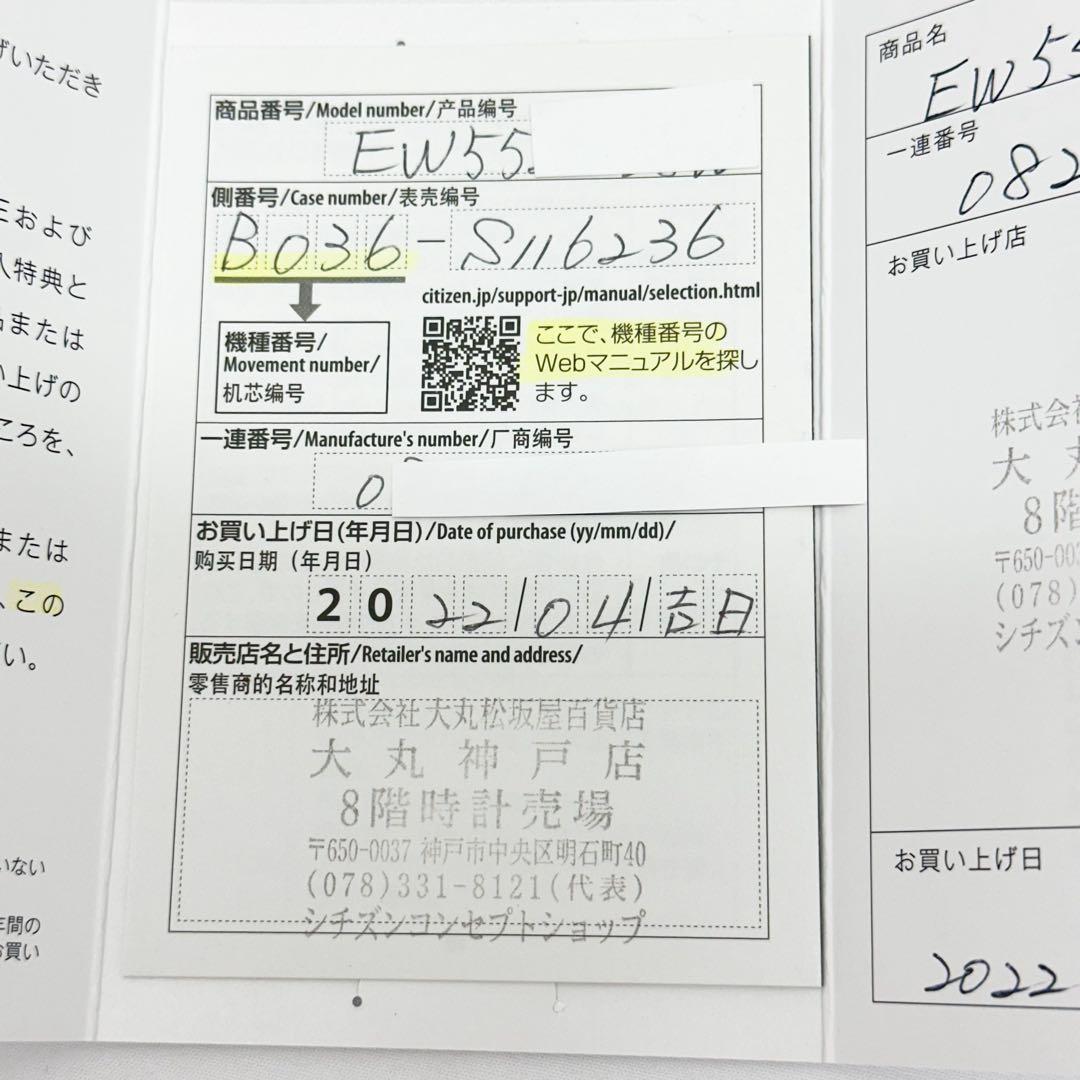 げいただき
および
入特典と
または
い上げの
ころを、
または
、この
い。
いない
年間の
お買い
商品番号/Model number/产品编号
EW55
側番号/Case number/表壳编号
B036-S116236
citizen.jp/support-jp/manual/selection.html
機種番号/
Movement number/
机芯编号
ここで、機種番号の
Webマニュアルを探し
ます。
一連番号/Manufacture's number/厂商编号
0
お買い上げ日(年月日)/Date of purchase (yy/mm/dd)/
购买日期（年月日）
2022/04/吉日
販売店名と住所/Retailer's name and address/
零售商的名称和地址
株式会社大丸松坂屋百貨店
大丸神戸店
8階時計売場
〒650-0037 神戸市中央区明石町40
(078)331-8121(代表)
シチズンコンセプトショップ
商品名
EW55
一連番号
082
お買い上げ店
株式会社
大丸
8階
〒650-003
(078)
シチズン
お買い上げ日
2022